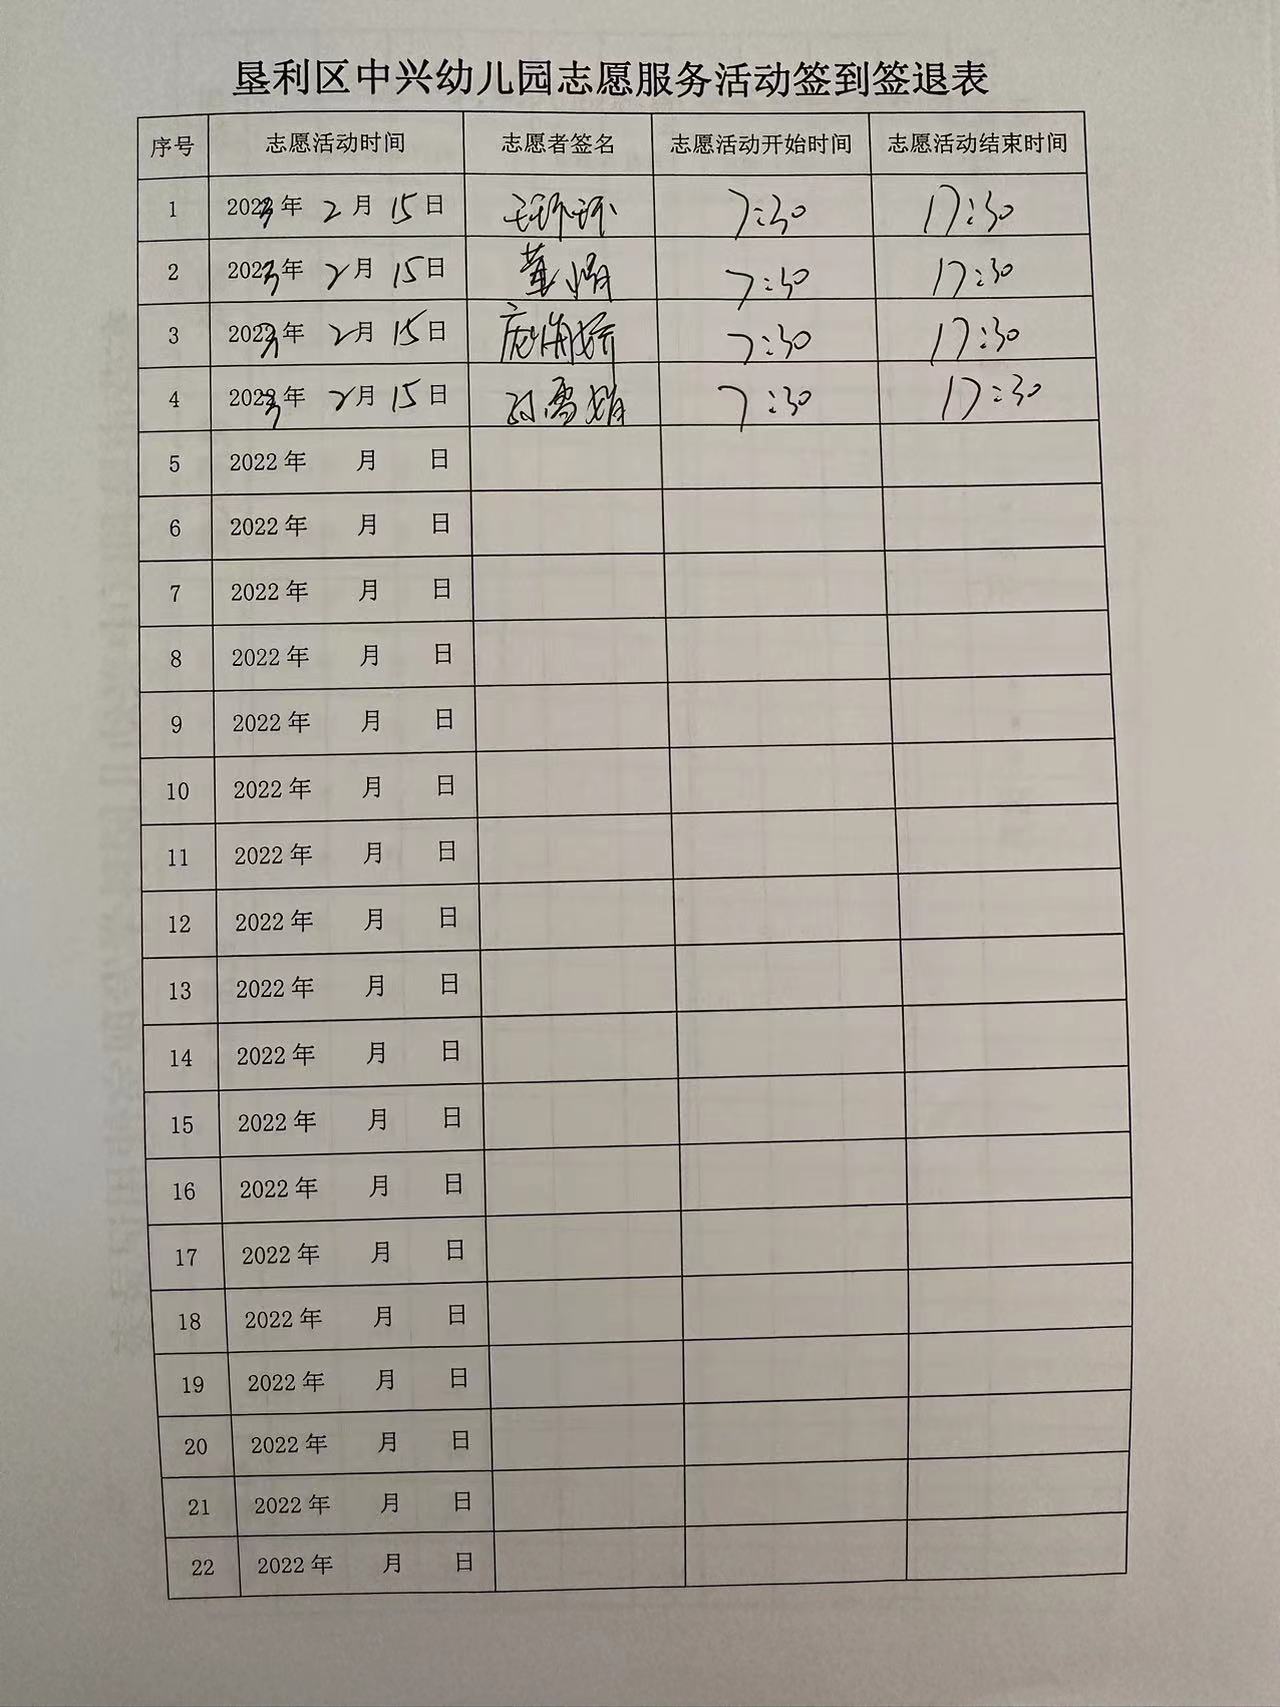 垦利区中兴幼儿园志愿服务活动签到签退表
序号 志愿活动时间 志愿者签名 志愿活动开始时间 志愿活动结束时间
1 2023年 2月 15日 王环环 7:30 17:30
2 2023年 2月 15日 董娟 7:30 17:30
3 2023年 2月 15日 庞海娇 7:30 17:30
4 2023年 2月 15日 孙雪娟 7:30 17:30
5 2022年 月 日
6 2022年 月 日
7 2022年 月 日
8 2022年 月 日
9 2022年 月 日
10 2022年 月 日
11 2022年 月 日
12 2022年 月 日
13 2022年 月 日
14 2022年 月 日
15 2022年 月 日
16 2022年 月 日
17 2022年 月 日
18 2022年 月 日
19 2022年 月 日
20 2022年 月 日
21 2022年 月 日
22 2022年 月 日